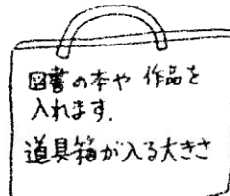 図書の本や 作品を
入れます.
道具箱が入る大きさ